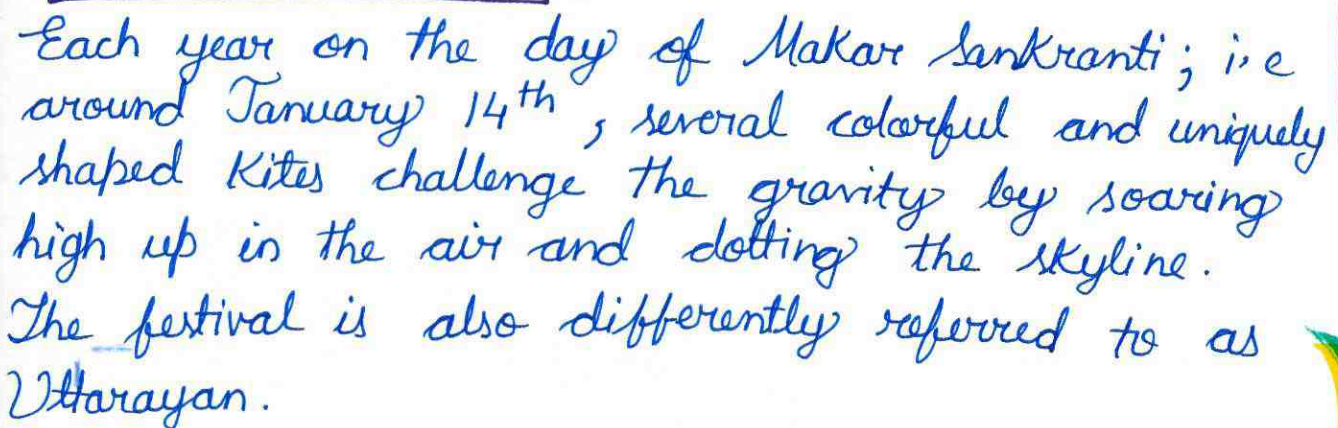 Each year on the day of Makar Sankranti; i.e
around January 14th, several colorful and uniquely
shaped kites challenge the gravity by soaring
high up in the air and dotting the skyline.
The festival is also differently referred to as
Uttarayan.